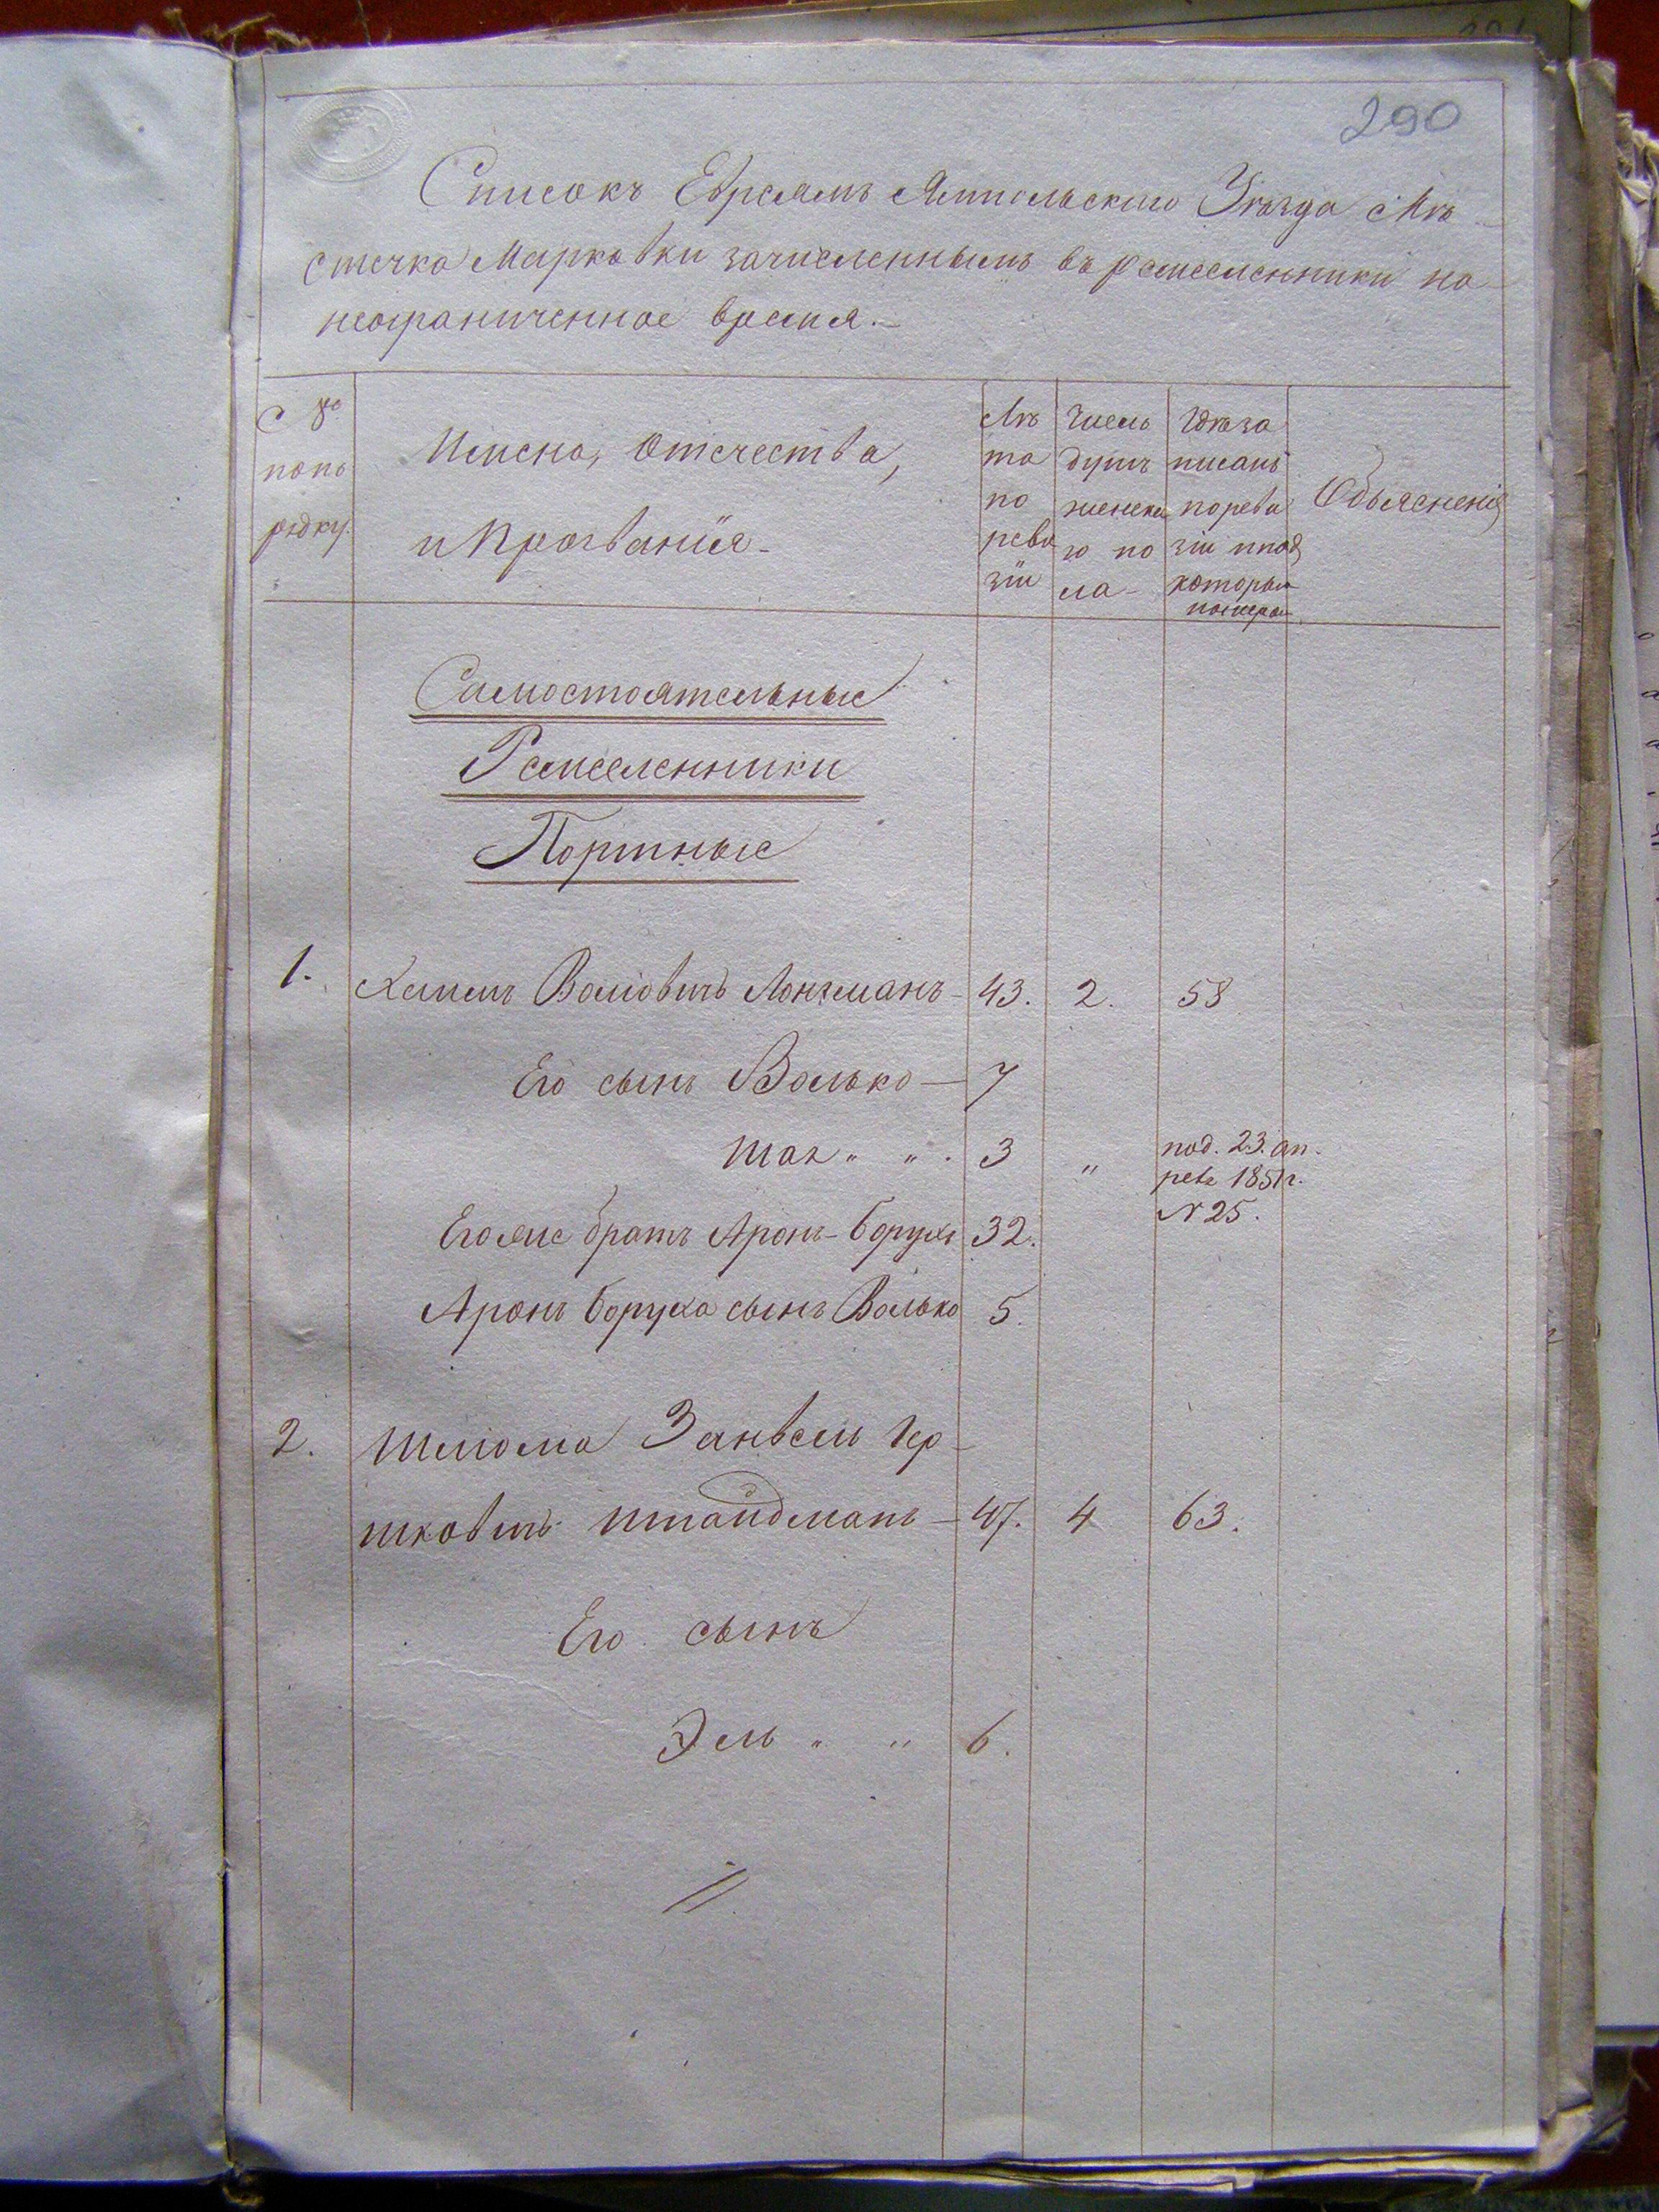 290
Списокъ Евреямъ Ямпольскаго Уѣзда Мѣ-
стечка Марковки зачисленнымъ въ ремесленники на
неограниченное время.-
№
по по
рядку.
Имена, Отечества,
и Прозванія-
Лѣ
та
по
реви
зіи
Число
душъ
женска
го по
ла-
Гдѣ за
писанъ
по реви
зіи и под
которым
номером
Объясненія
Самостоятельные
Ремесленники
Портные
1. Волховичъ Лонгманъ - 43. 2. 58
Его сынъ Волько - 7
Шая " " . 3 " под. 23. ап.
рев 1851 г.
N 25.
Его же братъ Аронъ-Борухъ 32.
Аронъ Боруха сынъ Волько 5.
2. Шлиома Занвель Гер-
шковичъ Штайдманъ - 47. 4 63.
Его сынъ
Эль " " 6.